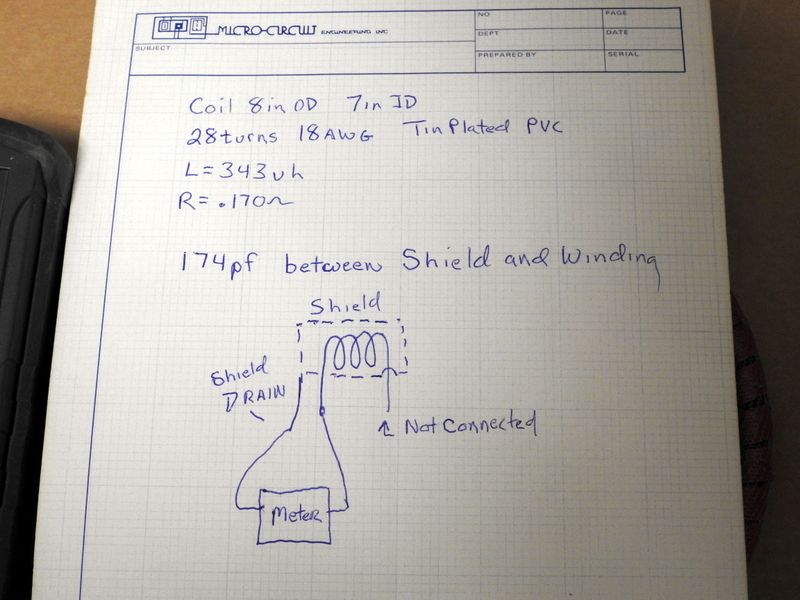 MICRO-CIRCUIT ENGINEERING INC
NO
PAGE
SUBJECT
DEPT
DATE
PREPARED BY
SERIAL
Coil 8in OD 7in ID
28turns 18AWG TinPlated PVC
L=343uh
R=.170Ω
174pf between Shield and Winding
Shield
Shield
DRAIN
↑ Not Connected
Meter